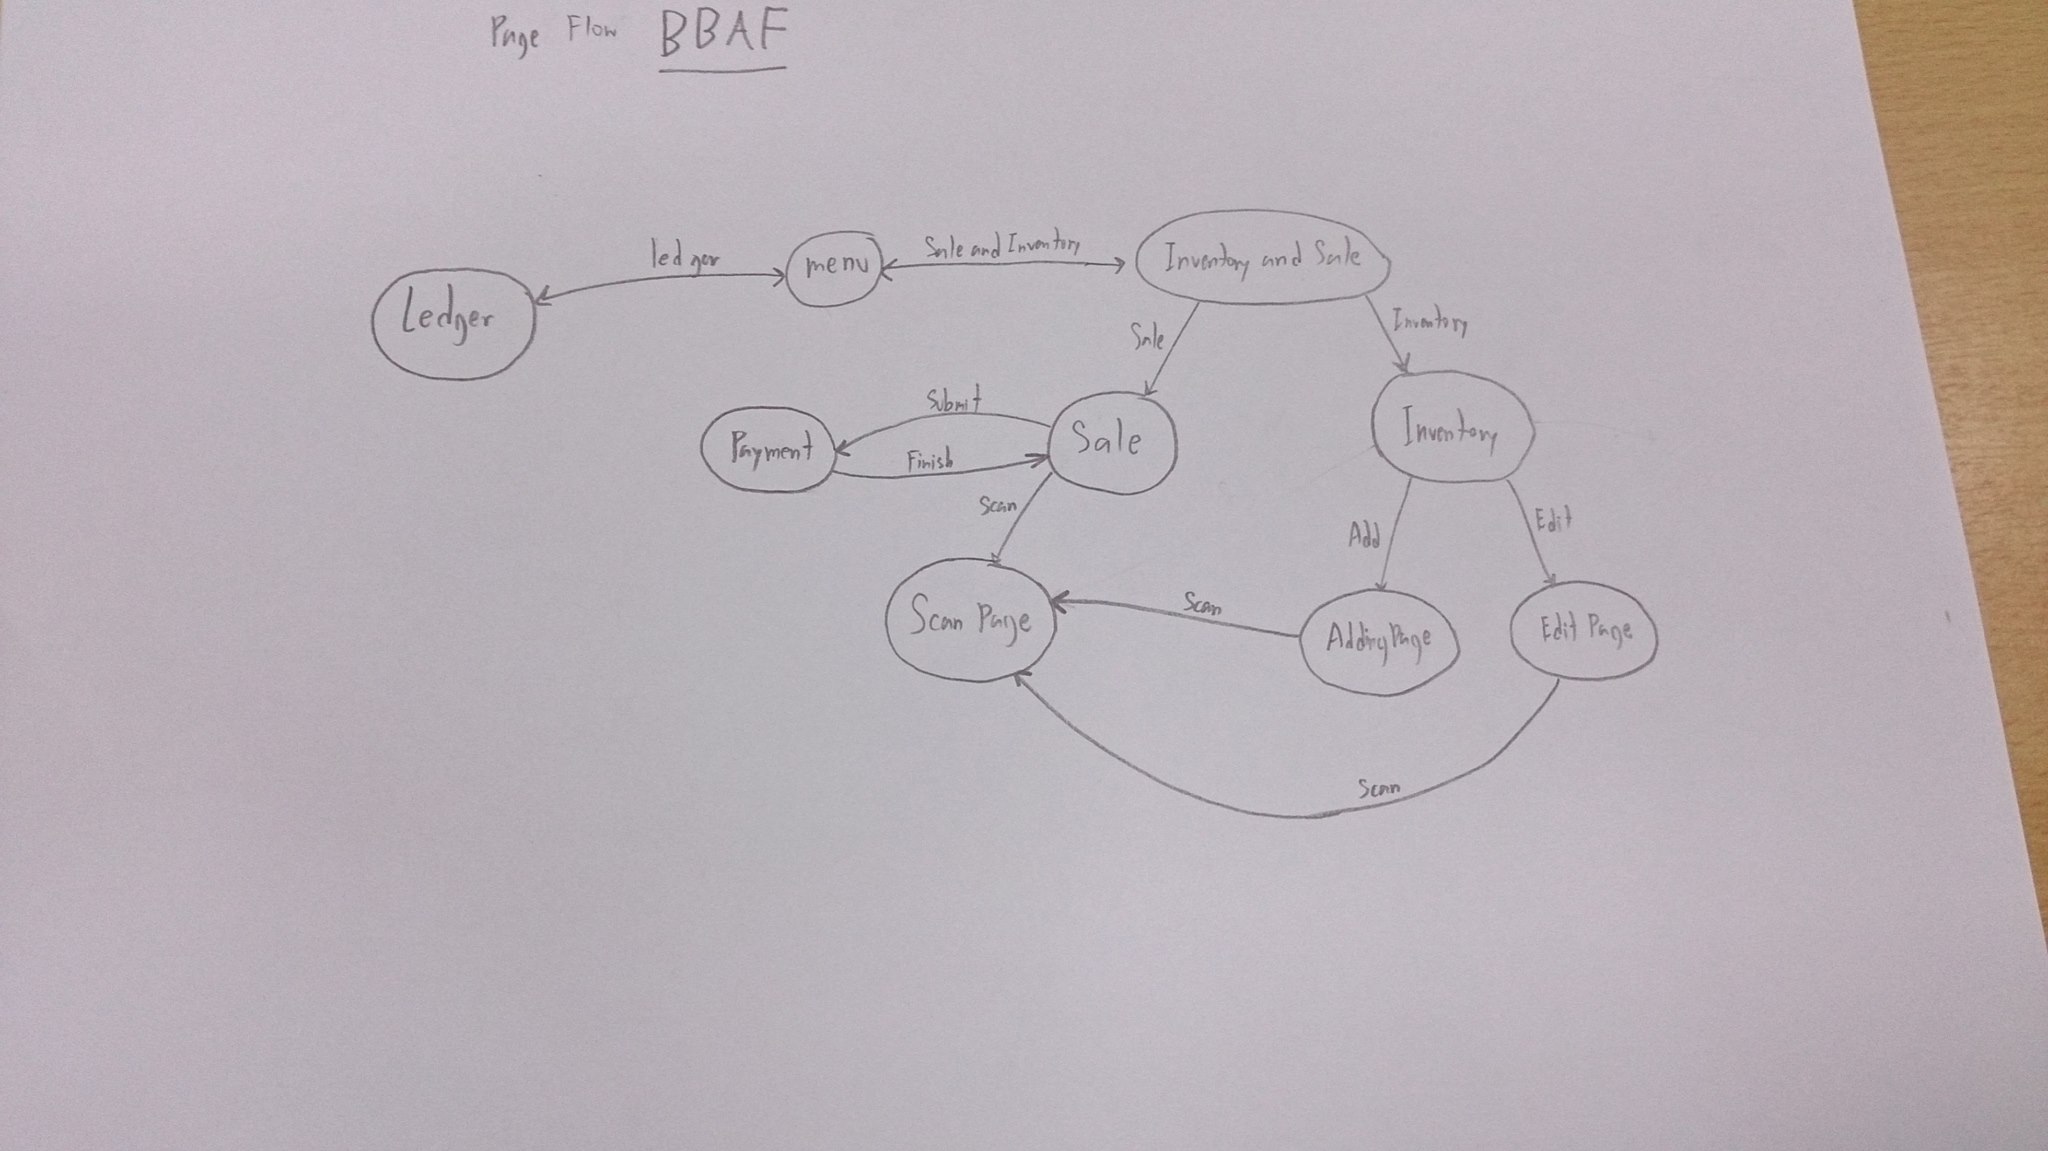 Page Flow BBAF
ledger
Sale and Inventory
Ledger
menu
Inventory and Sale
Sale
Inventory
Submit
Payment
Finish
Sale
Inventory
Scan
Add
Edit
Scan Page
Scan
AddingPage
Edit Page
Scan